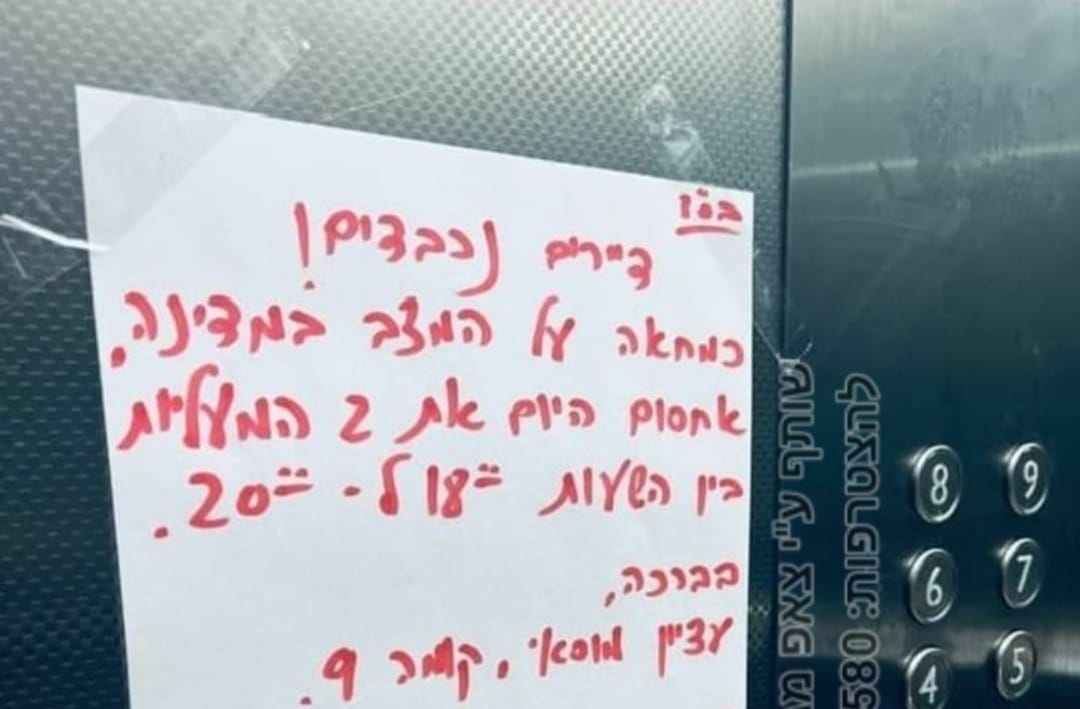 בס"ד
דיירים נכבדים!
כמחאה על המצב במדינה,
אחסום היום את 2 המעליות
בין השעות 18⁰⁰ ל- 20⁰⁰.
בברכה,
עציון מוסאי, קומה 9.
שותף ע"י צאפ מ
להצטרפות: 580
8 9
6 7
4 5